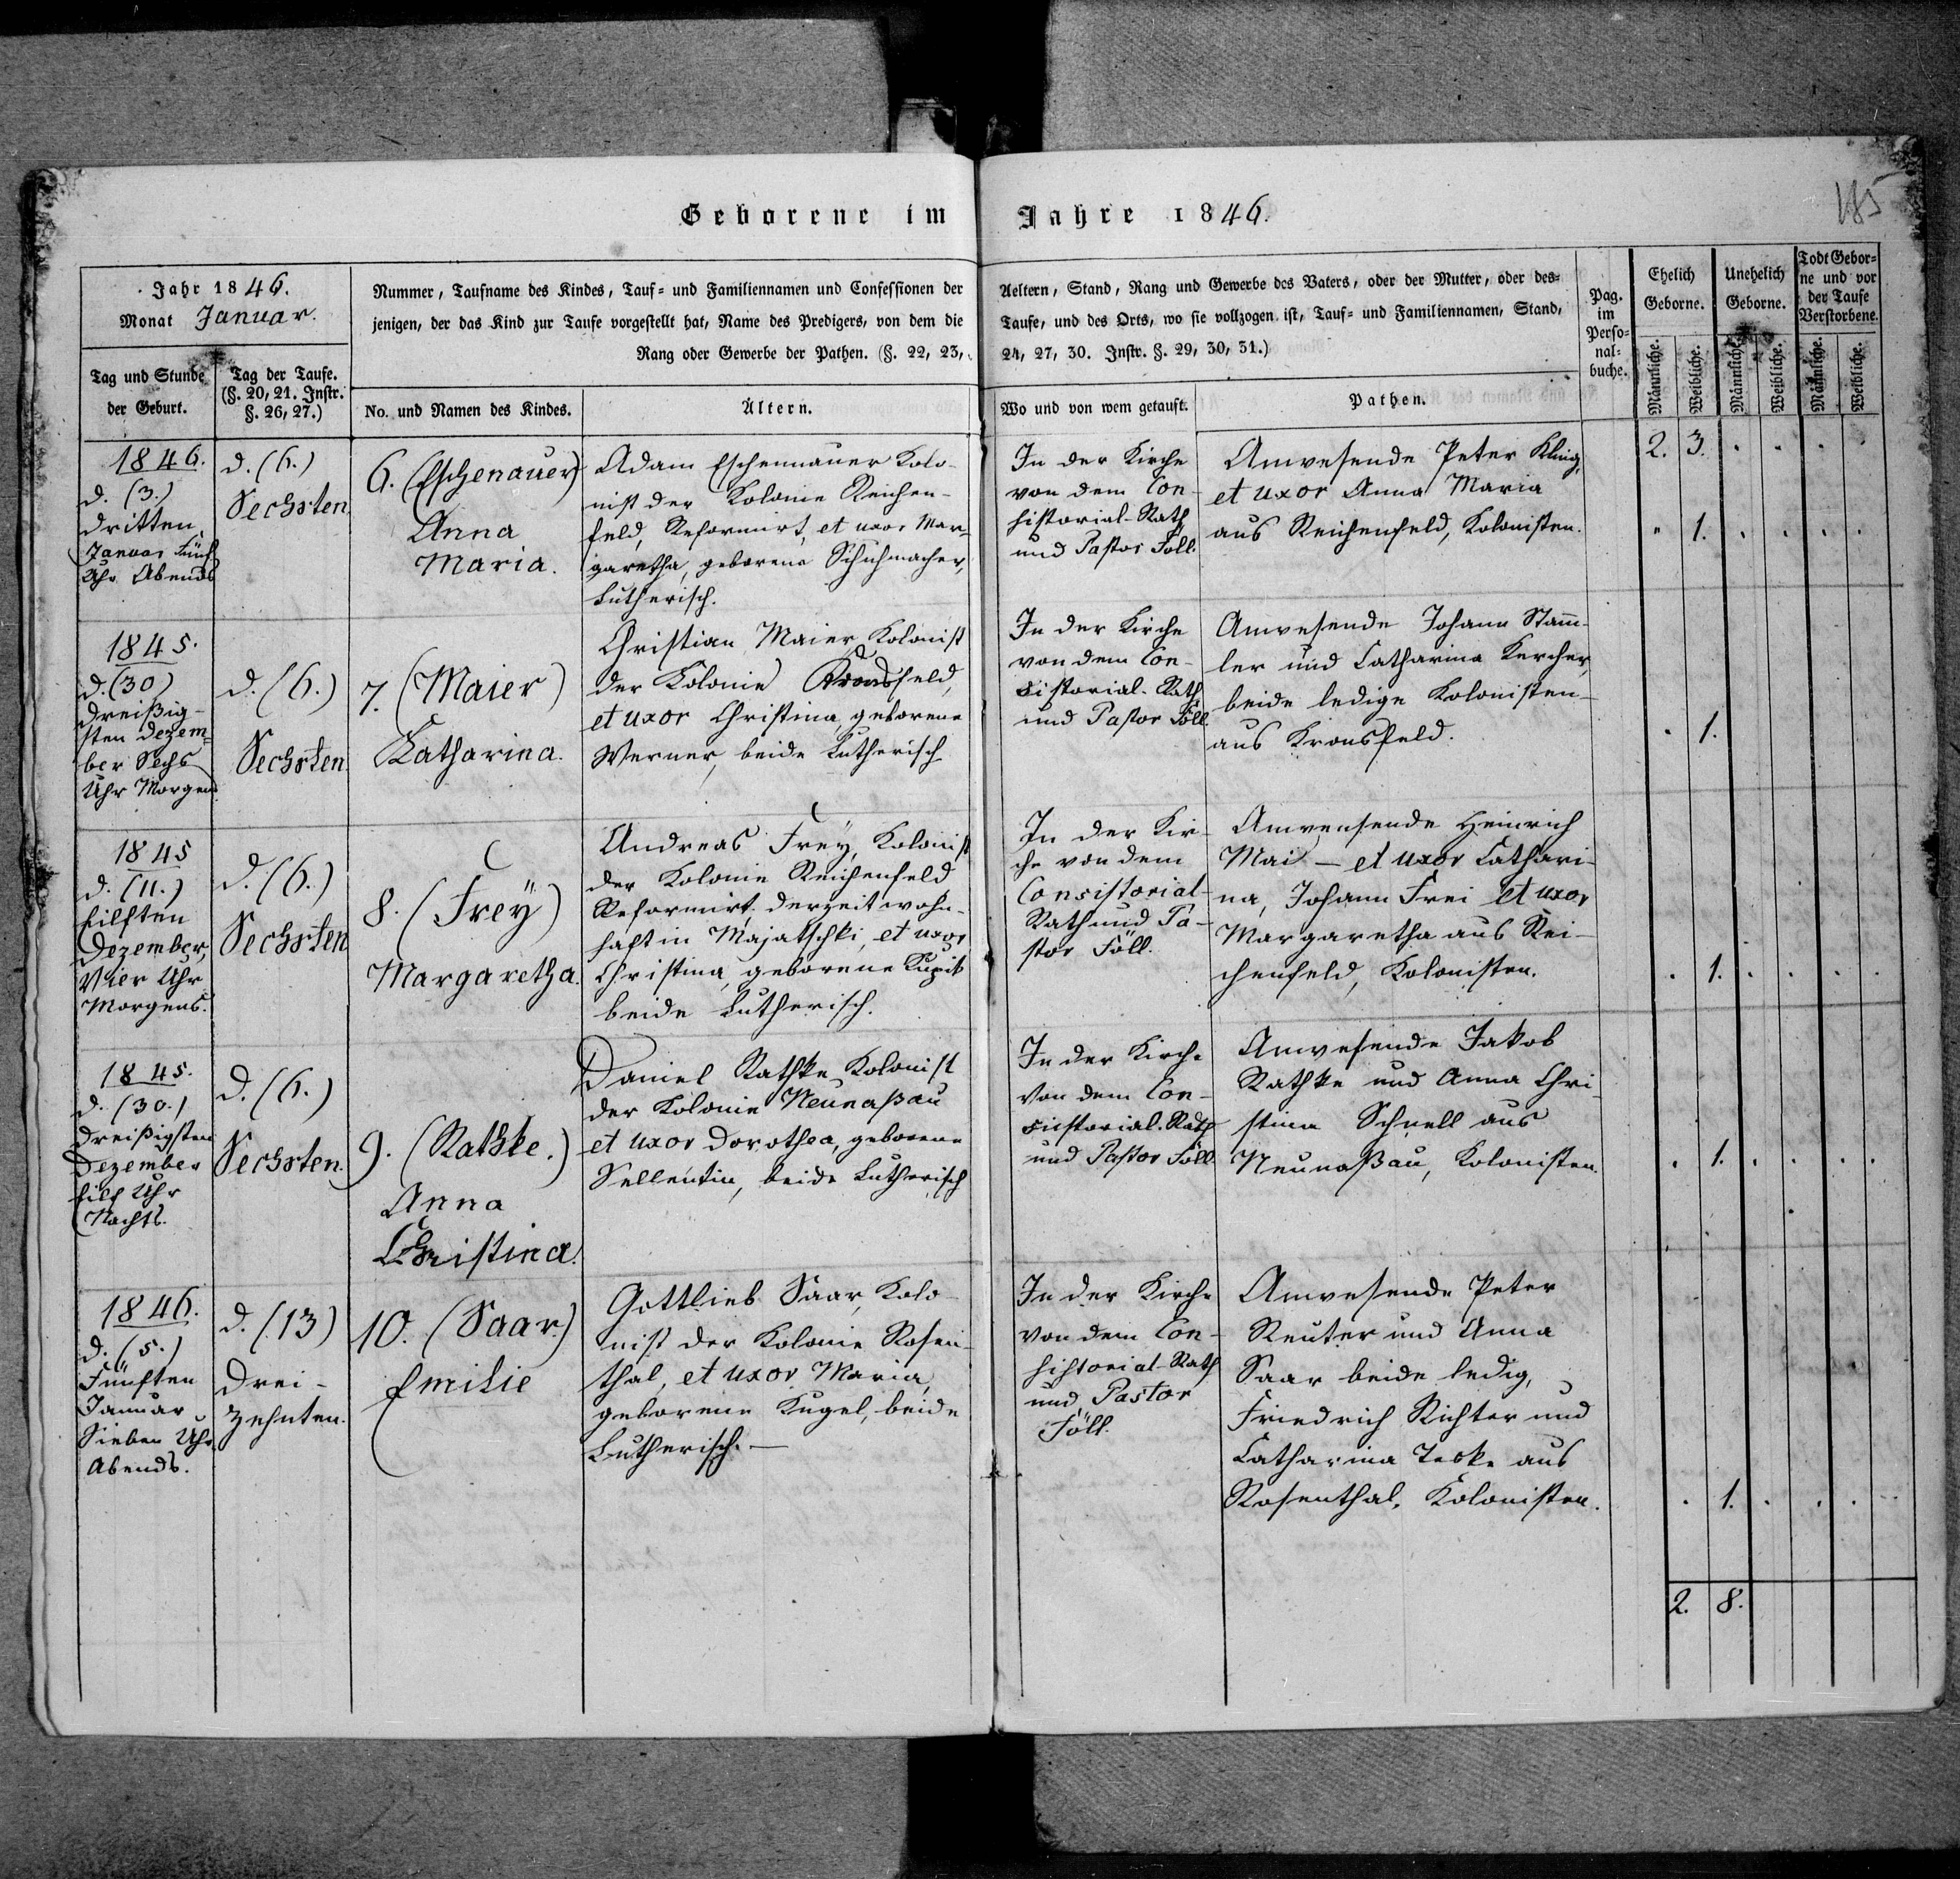 Geborene im Jahre 1846.
185
Jahr 1846.
Monat Januar.
Nummer, Taufname des Kindes, Tauf- und Familiennamen und Confessionen der
jenigen, der das Kind zur Taufe vorgestellt hat, Name des Predigers, von dem die
Rang oder Gewerbe der Pathen. (§. 22, 23,
Aeltern, Stand, Rang und Gewerbe des Vaters, oder der Mutter, oder des-
Taufe, und des Orts, wo sie vollzogen ist, Tauf- und Familiennamen, Stand,
24, 27, 30. Instr. §. 29, 30, 31.)
Pag.
im
Perso-
nal-
buche.
Ehelich
Geborne.
Unehelich
Geborne.
Todt Gebor-
ne und vor
der Taufe
Verstorbene.
Männliche.
Weibliche.
Männliche.
Weibliche.
Männliche.
Weibliche.
Tag und Stunde
der Geburt.
Tag der Taufe.
(§. 20, 21. Instr.
§. 26, 27.)
No. und Namen des Kindes.
Ältern.
Wo und von wem getauft.
Pathen.
1846.
d. (3.)
dritten
Januar Fünf
Uhr Abends
d. (6.)
Sechsten
6. (Eschenauer)
Anna
Maria.
Adam Eschennauer Kolo-
nist der Kolonie Reichen-
feld, Reformirt, et uxor Mar-
garetha, geborene Schuhmacher,
Lutherisch.
In der Kirche
von dem Con-
sistorial-Rath
und Pastor Föll.
Anwesende Peter
et uxor Anna Maria
aus Reichenfeld, Kolonisten.
2. 3. . . . .
" 1. . . . .
1845.
d. (30)
dreißig-
sten Dezem-
ber Sechs
Uhr Morgens
d. (6.)
Sechsten
7. (Maier)
Katharina.
Christian Maier, Kolonist
der Kolonie Kronsfeld,
et uxor Christina, geborene
Werner, beide Lutherisch
In der Kirche
von dem Con-
sistorial-Rath
und Pastor Föll.
Anwesende Johann Stamm-
ler und Catharina Kercher,
beide ledige Kolonisten
aus Kronsfeld.
. 1.
1845
d. (11.)
Eilften
Dezember,
Vier Uhr
Morgens.
d. (6.)
Sechsten
8. (Freÿ)
Margaretha.
Andreas Freÿ, Kolonist
der Kolonie Reichenfeld
Reformirt, derzeit wohn-
haft in Majatschki, et uxor
Christina, geborene
beide Lutherisch.
In der Kir-
che von dem
Consistorial-
Rath und Pa-
stor Föll.
Anwesende Heinrich
Mai — et uxor Cathari-
na, Johann Frei et uxor
Margaretha aus Rei-
chenfeld, Kolonisten.
. 1. . . . .
1845.
d. (30.)
dreißigsten
Dezember
Eilf Uhr
Nachts.
d. (6.)
Sechsten.
9. (Rathke.)
Anna
Christina.
Daniel Rathke Kolonist
der Kolonie Neunaßau
et uxor Dorothea, geborene
Sellentin, beide Lutherisch
In der Kirche
von dem Con-
sistorial-Rath
und Pastor Föll.
Anwesende Jakob
Rathke und Anna Chri-
stina Schnell aus
Neunaßau, Kolonisten.
. 1. . . . .
1846.
d. (5.)
Fünften
Januar
Sieben Uhr
Abends.
d. (13)
Drei-
zehnten.
10. (Saar.)
Emilie
Gottlieb Saar, Kolo-
nist der Kolonie Rosen-
thal, et uxor Maria,
geborene Kugel, beide
Lutherisch. —
In der Kirche
von dem Con-
sistorial-Rath
und Pastor
Föll.
Anwesende Peter
Reuter und Anna
Saar beide ledig,
Friedrich Richter und
Catharina Teske aus
Rosenthal, Kolonisten.
. 1. . . .
2. 8.